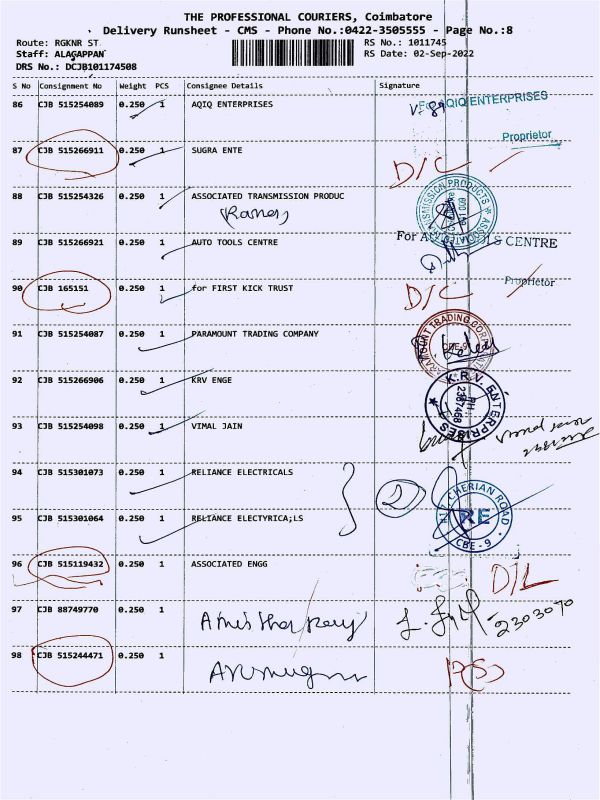 THE PROFESSIONAL COURIERS, Coimbatore
Delivery Runsheet - CMS - Phone No.:0422-3505555 - Page No.:8
Route: RGKNR ST
RS No.: 1011745
Staff: ALAGAPPAN
RS Date: 02-Sep-2022
DRS No.: DCJB101174508
S No Consignment No Weight PCS Consignee Details Signature
86 CJB 515254089 0.250 1 AQIQ ENTERPRISES
For AQIQ ENTERPRISES
Proprietor
87 CJB 515266911 0.250 1 SUGRA ENTE D/C
88 CJB 515254326 0.250 1 ASSOCIATED TRANSMISSION PRODUC
89 CJB 515266921 0.250 1 AUTO TOOLS CENTRE
CENTRE
Proprietor
90 CJB 165151 0.250 1 for FIRST KICK TRUST D/C
91 CJB 515254087 0.250 1 PARAMOUNT TRADING COMPANY
92 CJB 515266906 0.250 1 KRV ENGE
K.R.V. ENTERPRISES
93 CJB 515254098 0.250 1 VIMAL JAIN
94 CJB 515301073 0.250 1 RELIANCE ELECTRICALS
2
CHERIAN ROAD
RE
CBE-9
95 CJB 515301064 0.250 1 RELIANCE ELECTYRICA;LS
96 CJB 515119432 0.250 1 ASSOCIATED ENGG D/L
97 CJB 88749770 0.250 1
98 CJB 515244471 0.250 1